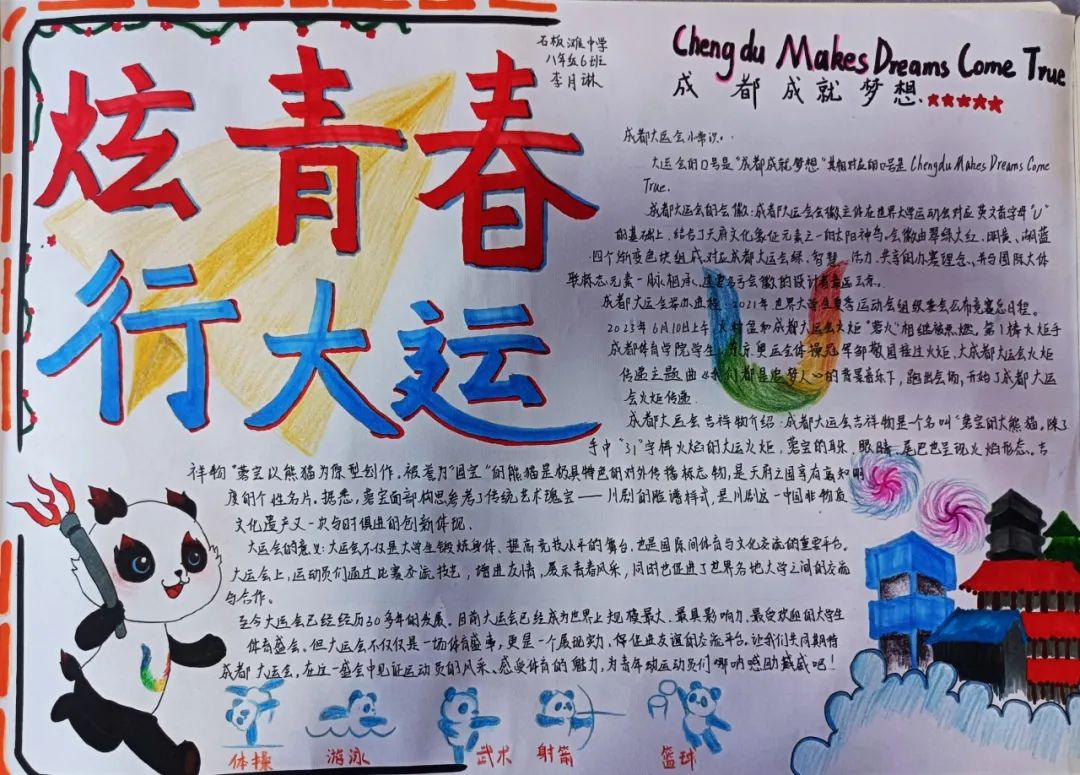 炫青春
行大运
石板滩中学
八年级6班
李月琳
Chengdu Makes Dreams Come True
成都成就梦想
成都大运会小常识:
大运会的口号是"成都成就梦想"其相对应的口号是Chengdu Makes Dreams Come
True.
成都大运会的会徽:成都大运会会徽主体在世界大学运动会对应英文首字母"U"
的基础上,结合了天府文化象征元素之一的太阳神鸟。会徽由翠绿、大红、明黄、湖蓝
四个渐变色块组成,对应成都大运会绿、智慧、活力、共享的办赛理念、并与国际大体
联标志元素一脉相承
成都大运会举办进程:2021年世界大学生夏季运动会组织委会公布竞赛总日程。
2023年6月10日上午,火种盆和成都大运会火炬"蓉火"相继被点燃。第1棒火炬手
成都体育学院学生、东京奥运会体操冠军邹敬园接过火炬、大成都大运会火炬
传递主题曲《我们都是追梦人》的背景音乐下,跑出会场,开始了成都大运
会火炬传递
成都大运会吉祥物介绍:成都大运会吉祥物是一个名叫"蓉宝的大熊猫,
手中"31"字样火焰的大运火炬,蓉宝的耳、眼睛、尾巴也呈现火焰形态。吉
祥物"蓉宝以熊猫为原型创作。被誉为"国宝"的熊猫是极具特色的对外传播标志物,是天府之国享有高知明
度的个性名片。据悉,蓉宝面部构思参考了传统艺术瑰宝——川剧的脸谱样式,是川剧这一中国非物质
文化遗产又一次与时俱进的创新体现.
大运会的意义:大运会不仅是大学生锻炼身体、提高竞技水平的舞台,也是国际间体育与文化交流的重要平台。
大运会上,运动员们通过比赛交流技艺,增进友情,展示青春风采,同时也促进了世界各地大学之间的交流
与合作。
至今大运会已经经历30多年的发展、目前大运会已经成为世界上规模最大、最具影响力、最受欢迎的大学生
体育盛会。但大运会不仅仅是一场体育盛事,更是一个展现实力、促进友谊的交流平台。让我们共同期待
成都大运会,在这一盛会中见证运动员的风采、感受体育的魅力,为青年运动员们呐喊助威吧!
体操
游泳
武术
射箭
篮球